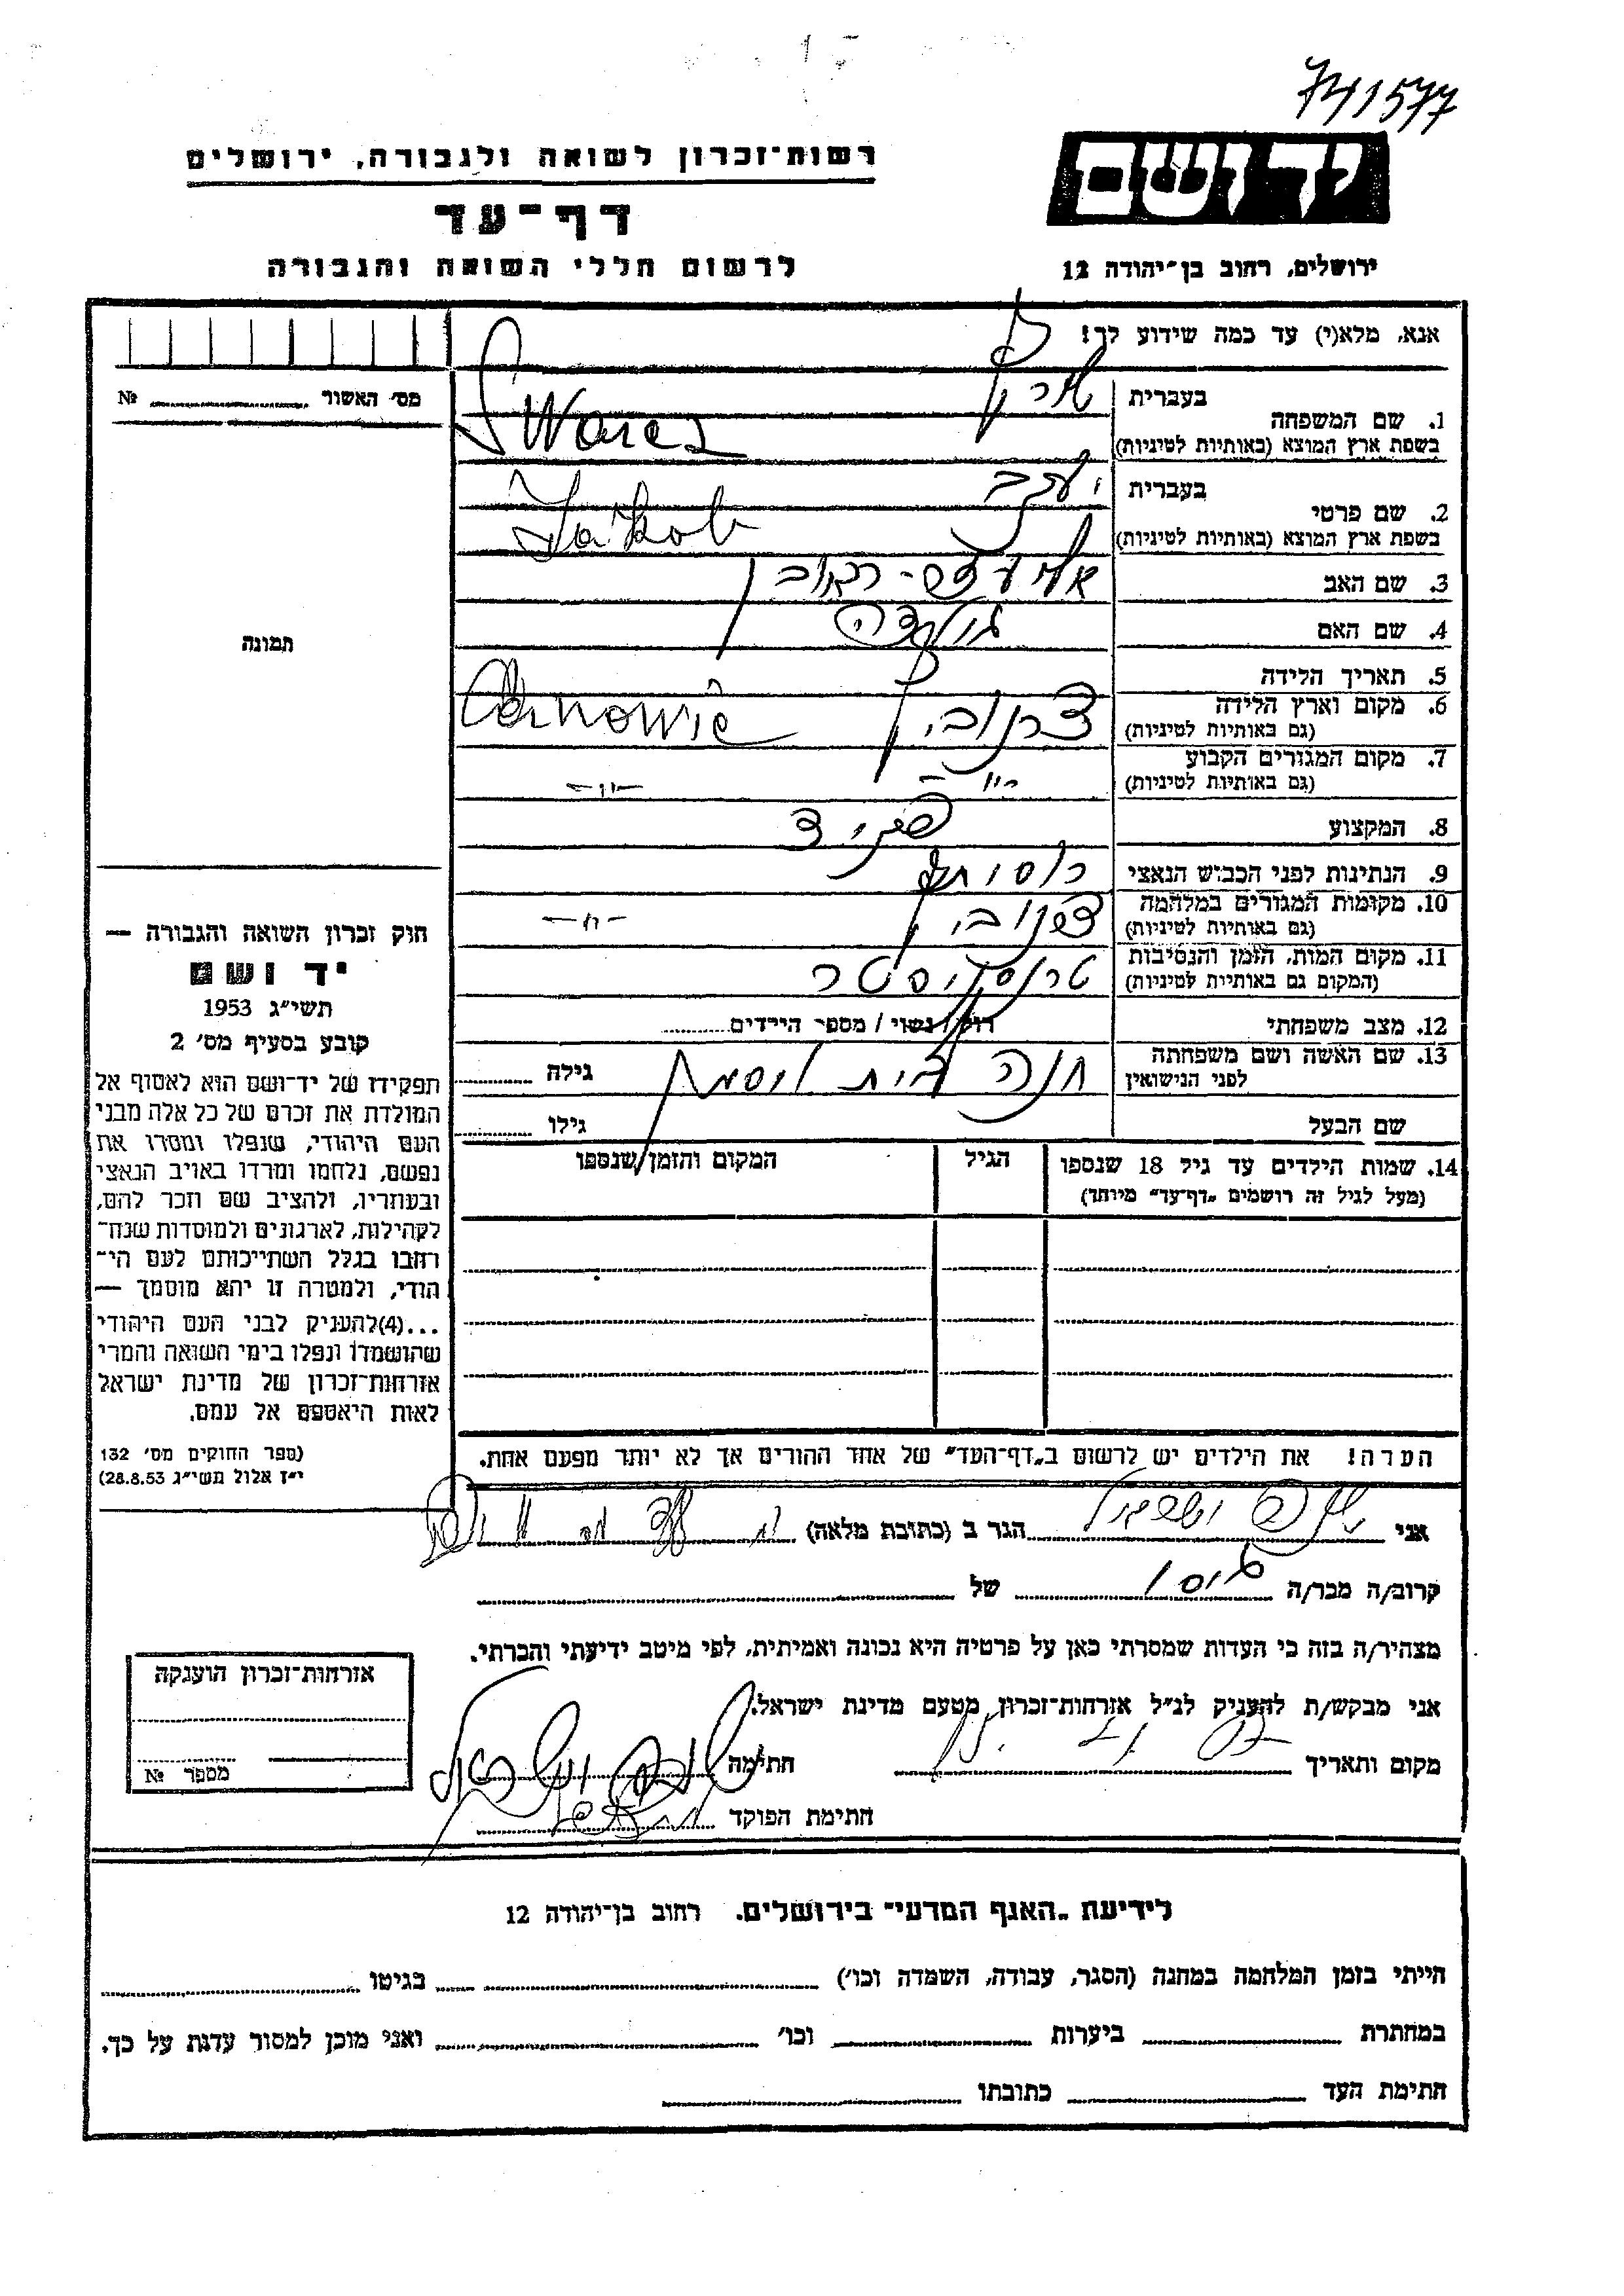 741577
יד ושם
רשות־זכרון לשואה ולגבורה, ירושלים
דף־עד
לרשום חללי השואה והגבורה
ירושלים, רחוב בן־יהודה 12
אנא, מלא(י) עד כמה שידוע לך!
מס׳ האשור № 
1. שם המשפחה
בעברית
בשפת ארץ המוצא (באותיות לטיניות)
Swarcz
2. שם פרטי
בעברית יעקב
בשפת ארץ המוצא (באותיות לטיניות) Jakob
3. שם האב
4. שם האם גולדה
5. תאריך הלידה
6. מקום וארץ הלידה
(גם באותיות לטיניות)
7. מקום המגורים הקבוע
(גם באותיות לטיניות)
־״־ ־״־
8. המקצוע פקיד
9. הנתינות לפני הכביש הנאצי
10. מקומות המגורים במלחמה
(גם באותיות לטיניות)
־״־
11. מקום המות, הזמן והנסיבות
(המקום גם באותיות לטיניות)
12. מצב משפחתי רווק/נשוי/מספר הילדים
13. שם האשה ושם משפחתה
לפני הנישואין
חנה לבית גילה
שם הבעל גילו
14. שמות הילדים עד גיל 18 שנספו
(מעל לגיל זה רושמים „דף־עד״ מיוחד)
הגיל
המקום והזמן שנספו
הערה! את הילדים יש לרשום ב„דף־העד״ של אחד ההורים אך לא יותר מפעם אחת.
תמונה
חוק זכרון השואה והגבורה —
יד ושם
תשי״ג 1953
קובע בסעיף מס׳ 2
תפקידו של יד־ושם הוא לאסוף אל
המולדת את זכרם של כל אלה מבני
העם היהודי, שנפלו ומסרו את
נפשם, נלחמו ומרדו באויב הנאצי
ובעוזריו, ולהציב שם וזכר להם,
לקהילות, לארגונים ולמוסדות שנח־
רחבו בגלל השתייכותם לעם הי־
הודי, ולמטרה זו יהא מוסמך —
...(4)להעניק לבני העם היהודי
שהושמדו ונפלו בימי השואה והמרי
אזרחות־זכרון של מדינת ישראל
לאות היאספם אל עמם.
(ספר החוקים מס׳ 132
י״ז אלול תשי״ג 28.8.53)
אני הגר ב (כתובת מלאה)
קרוב/ה מכר/ה גיסו של
מצהיר/ה בזה כי העדות שמסרתי כאן על פרטיה היא נכונה ואמיתית, לפי מיטב ידיעתי והכרתי.
אני מבקש/ת להעניק לנ״ל אזרחות־זכרון מטעם מדינת ישראל.
מקום ותאריך חתימה
חתימת הפוקד
אזרחות־זכרון הוענקה
מספר №
לידיעת „האגף המדעי״ בירושלים. רחוב בן־יהודה 12
הייתי בזמן המלחמה במחנה (הסגר, עבודה, השמדה וכו׳) בגיטו
במחתרת ביערות וכו׳ ואני מוכן למסור עדות על כך.
חתימת העד כתובתו